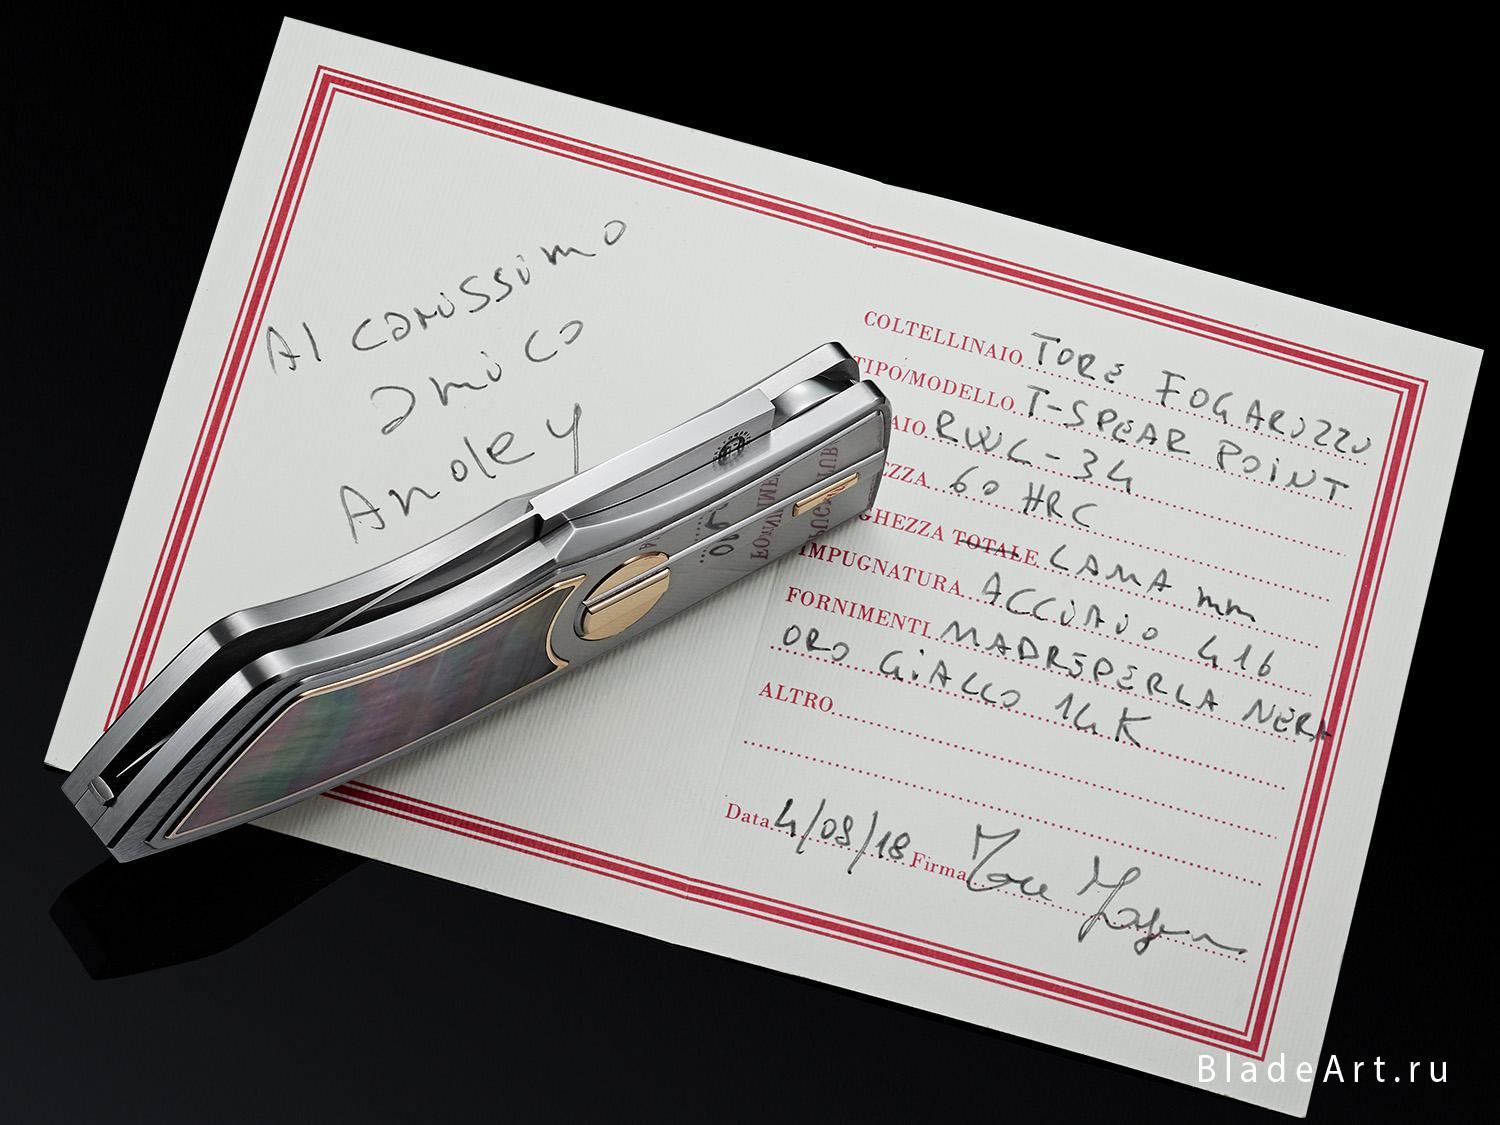 Al carissimo
amico
Andrey
COLTELLINAIO TORE FOGARIZZU
TIPO/MODELLO T-SPEAR POINT
AIO RWL-34
EZZA 60 HRC
GHEZZA TOTALE LAMA mm
IMPUGNATURA ACCIAIO 416
FORNIMENTI MADREPERLA NERA
ORO GIALLO 14K
ALTRO
Data 4/08/18 Firma
BladeArt.ru